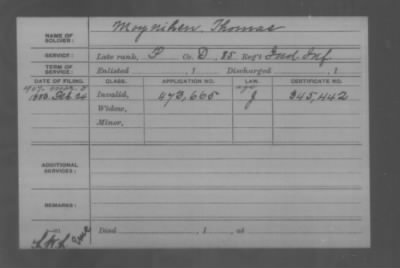 NAME OF SOLDIER: Moynihen, Thomas
SERVICE: Late rank, P Co. D, 85 Reg't Ind. Inf.
TERM OF SERVICE: Enlisted , 1 Discharged , 1
DATE OF FILING. CLASS. APPLICATION NO. LAW. CERTIFICATE NO.
1883. Feb 24 Invalid, 473,665 J 345,442
Widow,
Minor,
ADDITIONAL SERVICES:
REMARKS:
Died , 1 , at